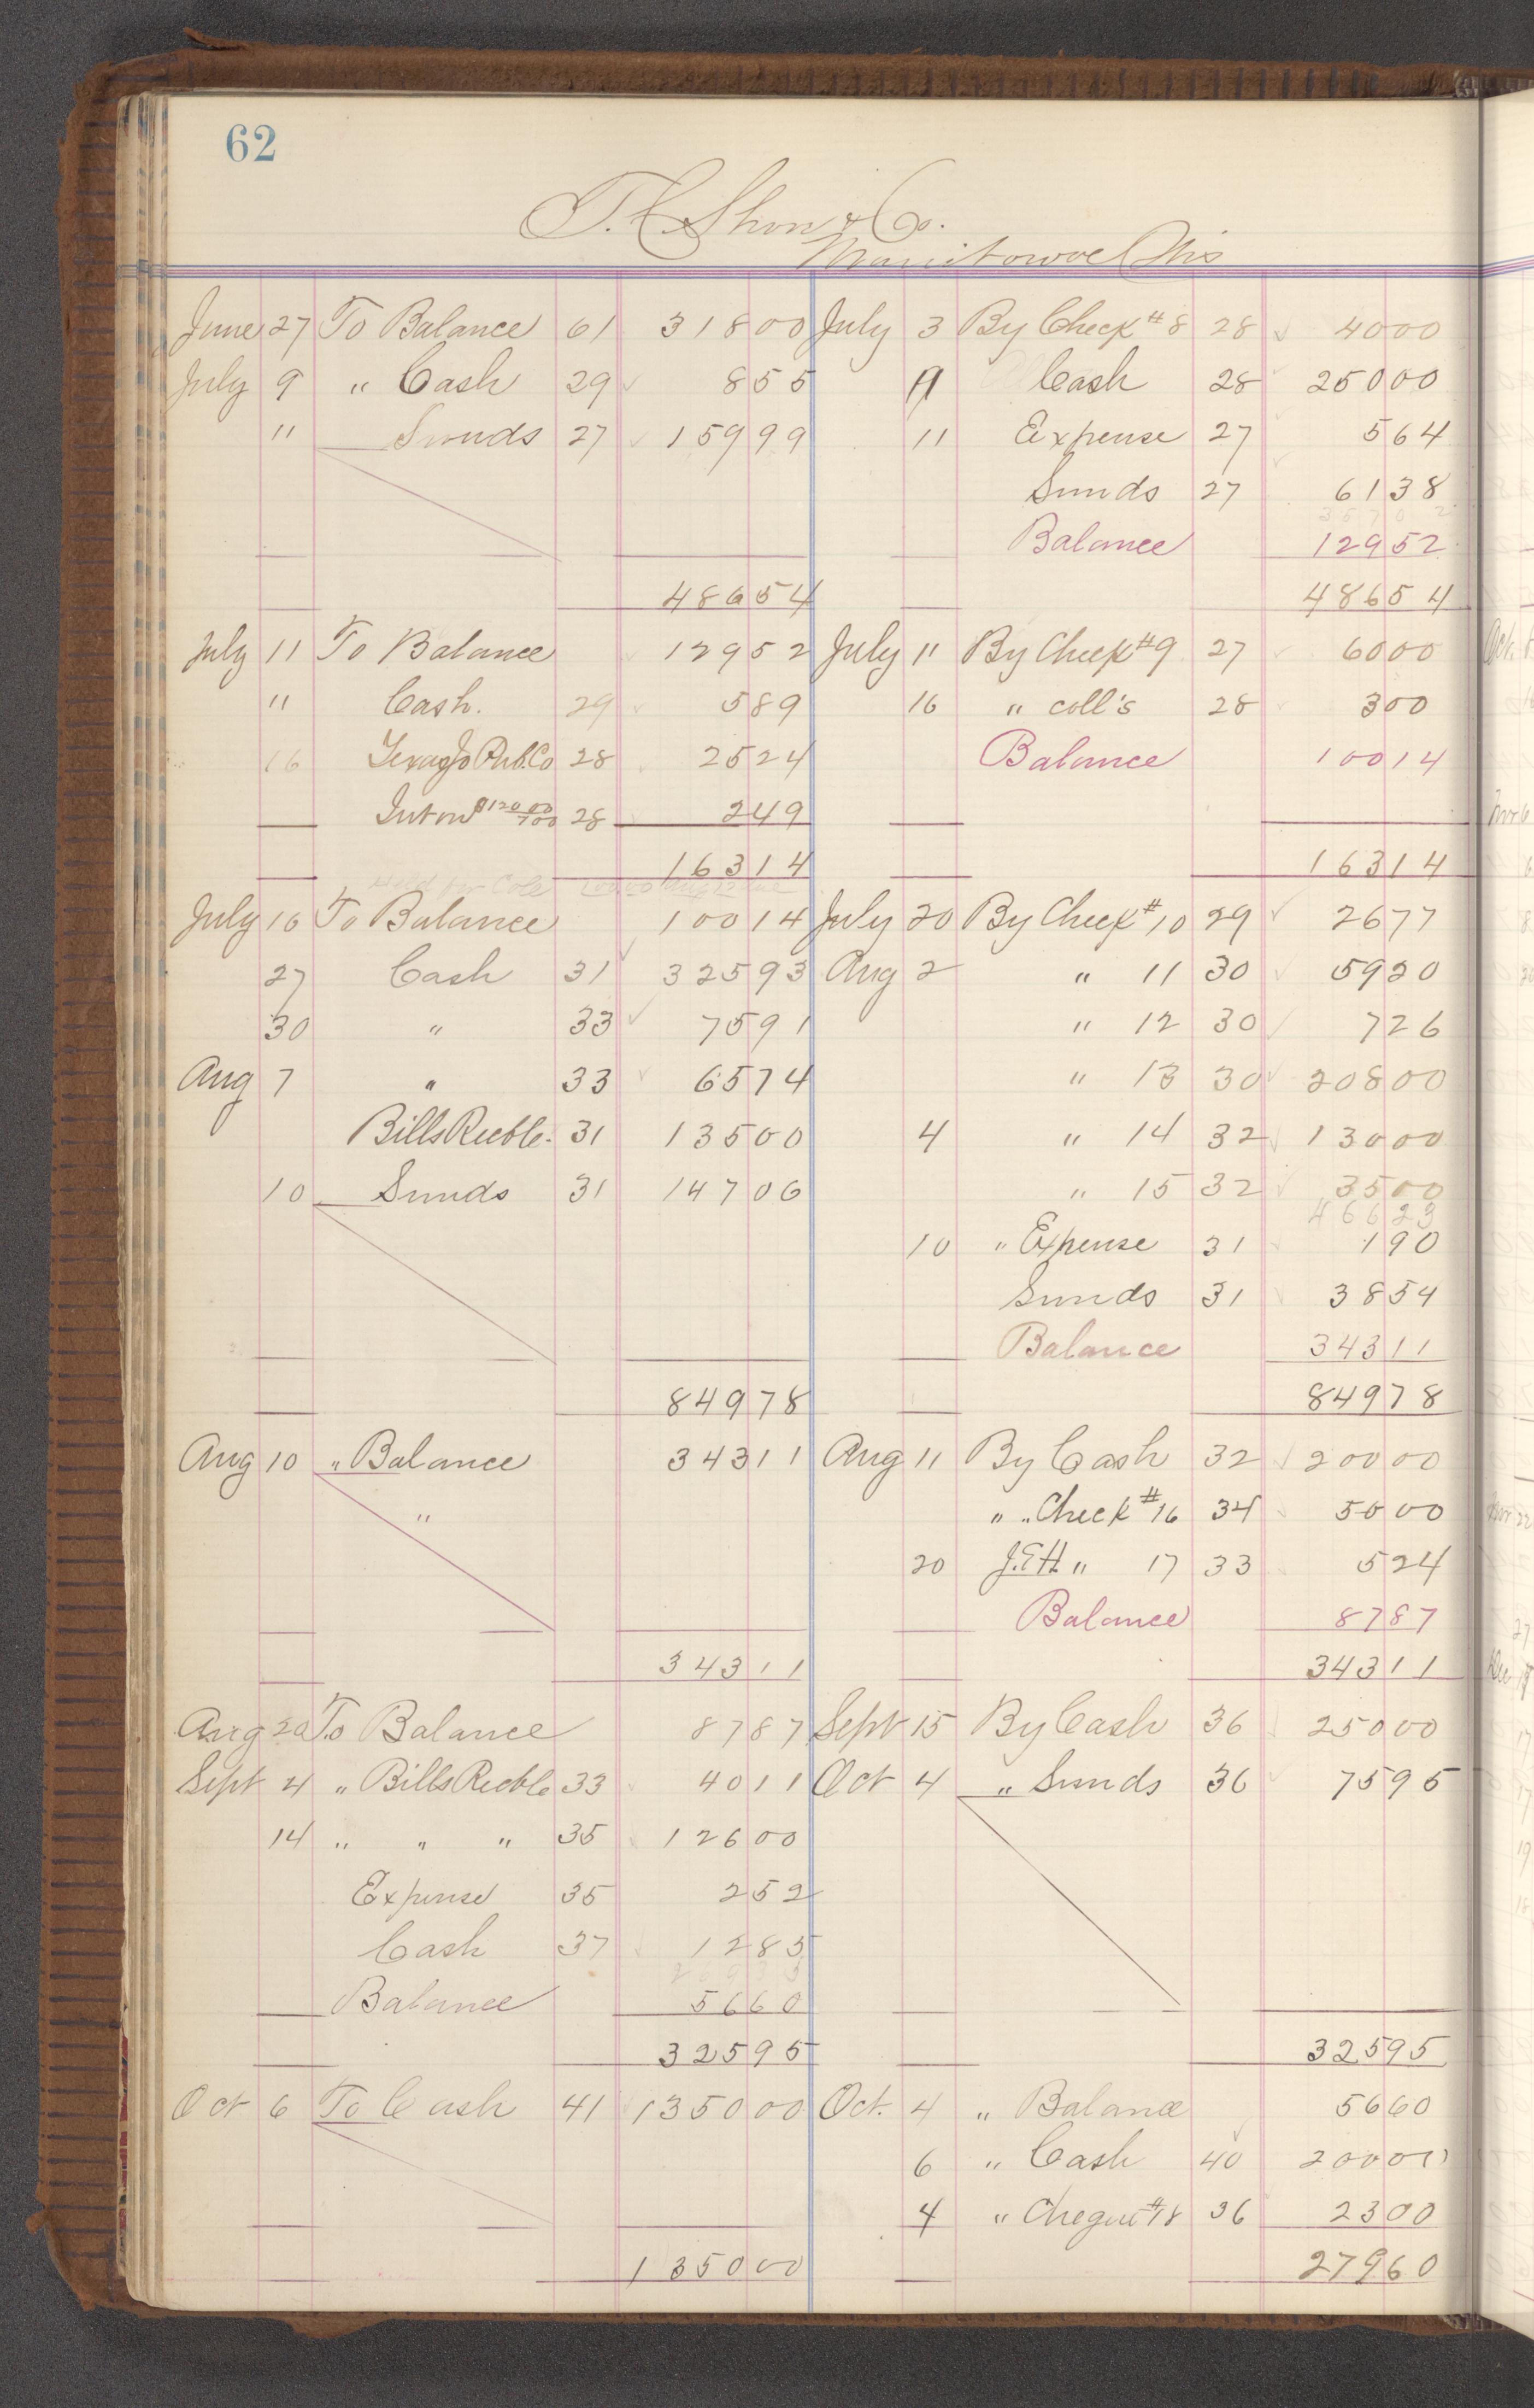 62
T. C. Shove & Co.
Manitowoc Wis
June 27 To Balance 61 318 00 July 3 By Check #8 28 40 00
July 9 " Cash 29 8 55 9 Cash 28 250 00
" Sunds 27 159 99 11 Expense 27 5 64
Sunds 27 61 38
357 02
Balance 129 52
486 54 486 54
July 11 To Balance 129 52 July 11 By Check #9 27 60 00
" Cash. 29 5 89 16 " coll's 28 3 00
16 Pub. Co 28 25 24 Balance 100 14
Int on $120 00/100 28 2 49
163 14 163 14
Held for Cole
July 16 To Balance 100 14 July 20 By Check #10 29 26 77
27 Cash 31 325 93 Aug 2 " 11 30 59 20
30 " 33 75 91 " 12 30 7 26
Aug 7 " 33 65 74 " 13 30 208 00
Bills Recble. 31 135 00 4 " 14 32 130 00
10 Sunds 31 147 06 " 15 32 35 00
466 23
10 " Expense 31 1 90
Sunds 31 38 54
Balance 343 11
849 78 849 78
Aug 10 " Balance 343 11 Aug 11 By Cash 32 200 00
" " " Check #16 34 50 00
20 J.E.H. " 17 33 5 24
Balance 87 87
343 11 343 11
Aug 20 To Balance 87 87 Sept 15 By Cash 36 250 00
Sept 4 " Bills Recble 33 40 11 Oct 4 " Sunds 36 75 95
14 " " " 35 126 00
Expense 35 2 52
Cash 37 12 85
269 35
Balance 56 60
325 95 325 95
Oct 6 To Cash 41 1350 00 Oct. 4 " Balance 56 60
6 " Cash 40 200 00
4 " Cheque #18 36 23 00
1350 00 279 60